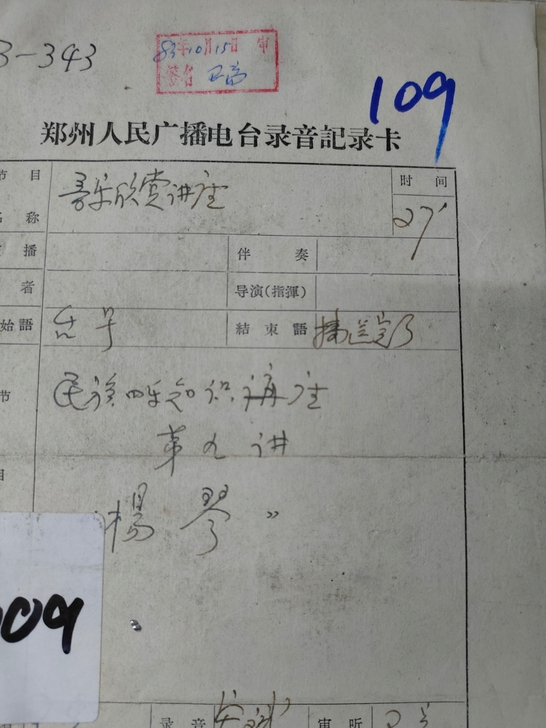 3-343
83年10月15日 审
签名
109
郑州人民广播电台录音記录卡
节目
名称
音乐欣赏讲座
时间
27'
播
伴奏
者
导演(指揮)
始語
台号
結束語
播送完了
节
目
民族器乐知识讲座
第九讲
"楊琴"
09
录音
审听